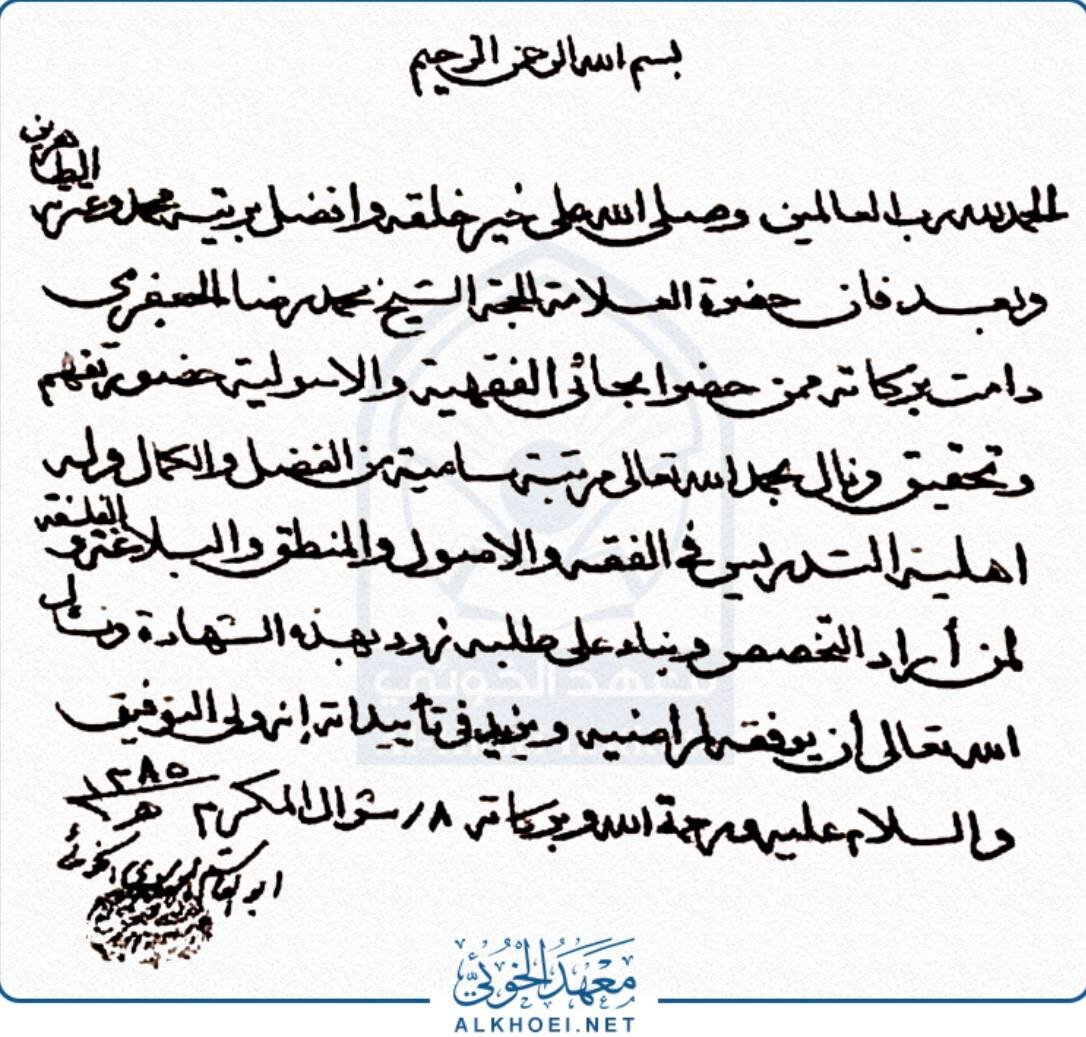 بسم الله الرحمن الرحيم
الحمد لله رب العالمين وصلى الله على خير خلقه وافضل بريته محمد وعترته الطاهرين
وبعد فان حضرة العلامة الحجة الشيخ محمد رضا الجعفري
دامت بركاته ممن حضر ابحاثي الفقهية والاصولية حضور تفهم
وتحقيق ونال بحمد الله تعالى مرتبة سامية من الفضل والكمال وله
اهلية التدريس في الفقه والاصول والمنطق والبلاغة و الفلسفة
لمن أراد التخصص وبناء على طلبه زود بهذه الشهادة ونسأل
الله تعالى أن يوفقه لمراضيه ويزيد في تأييداته إنه ولي التوفيق
والسلام عليه ورحمة الله وبركاته ٨/ شوال المكرم ١٣٨٥ هـ
ابو القاسم الموسوي الخوئي
معهد الخوئي
معهد الخوئي
ALKHOEI.NET